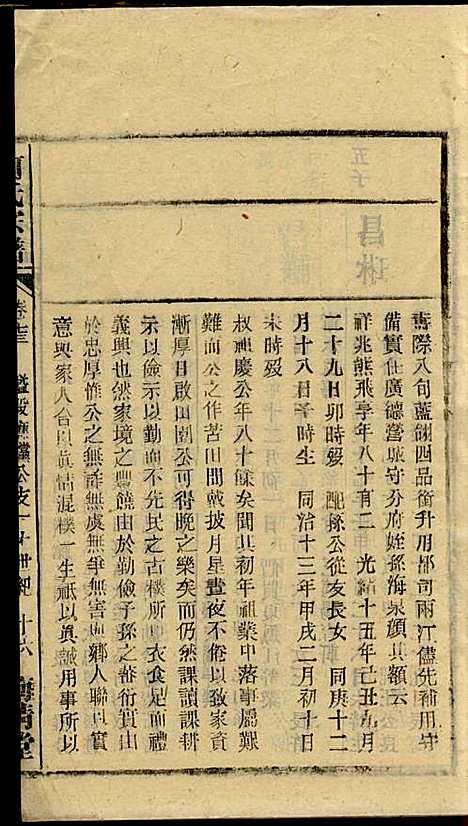 壽際八旬藍翎四品銜升用都司兩江儘先補用守
備實任廣德營城守分府姪孫海泉顏其額云
祥兆熊飛享年八十有二 光緒十五年己丑九月
二十九日卯時歿 配孫公從友長女 同庚十二
月十八日子時生 同治十三年甲戌二月初十日
未時歿
叔祖慶公年八十餘矣聞其初年祖業中落事屬艱
難而公之作苦田間戴披月星晝夜不倦以致家資
漸厚日啟田園公可得晚之樂矣而仍然課讀課耕
示以儉示以勤而不先民之古樸所具衣食足而禮
義興也然家境之豐饒由於勤儉子孫之蕃衍實由
於忠厚惟公之無詐無虞無爭無害與鄉人聯以實
意與家人合以真情混樸一生祇以真誠用事所以
氏宗譜
卷十三
公支二十世紀
十六
堂